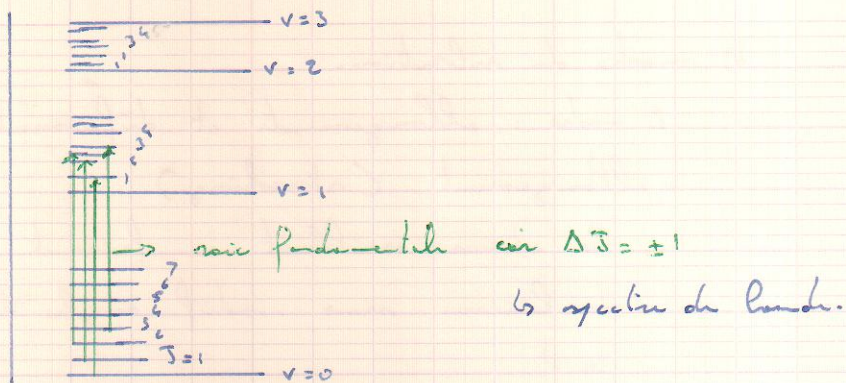 v = 3
3 4 5
1
v = 2
3 4
1
v = 1
→ raie fondamentale car Δ J = ± 1
↳ spectre de bande.
7
6
5
4
3
2
J = 1
v = 0